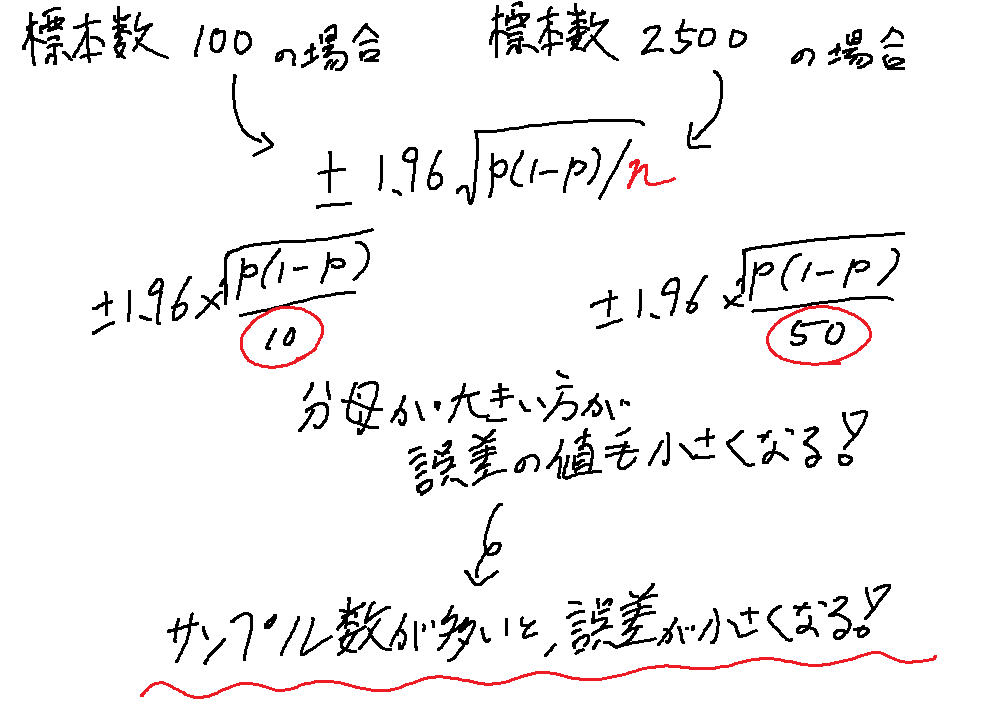 標本数 100 の場合
標本数 2500 の場合
± 1.96 √p(1-p)/n
±1.96×√p(1-p)/10
±1.96×√p(1-p)/50
分母が大きい方が
誤差の値も小さくなる!
サンプル数が多いと、誤差が小さくなる!